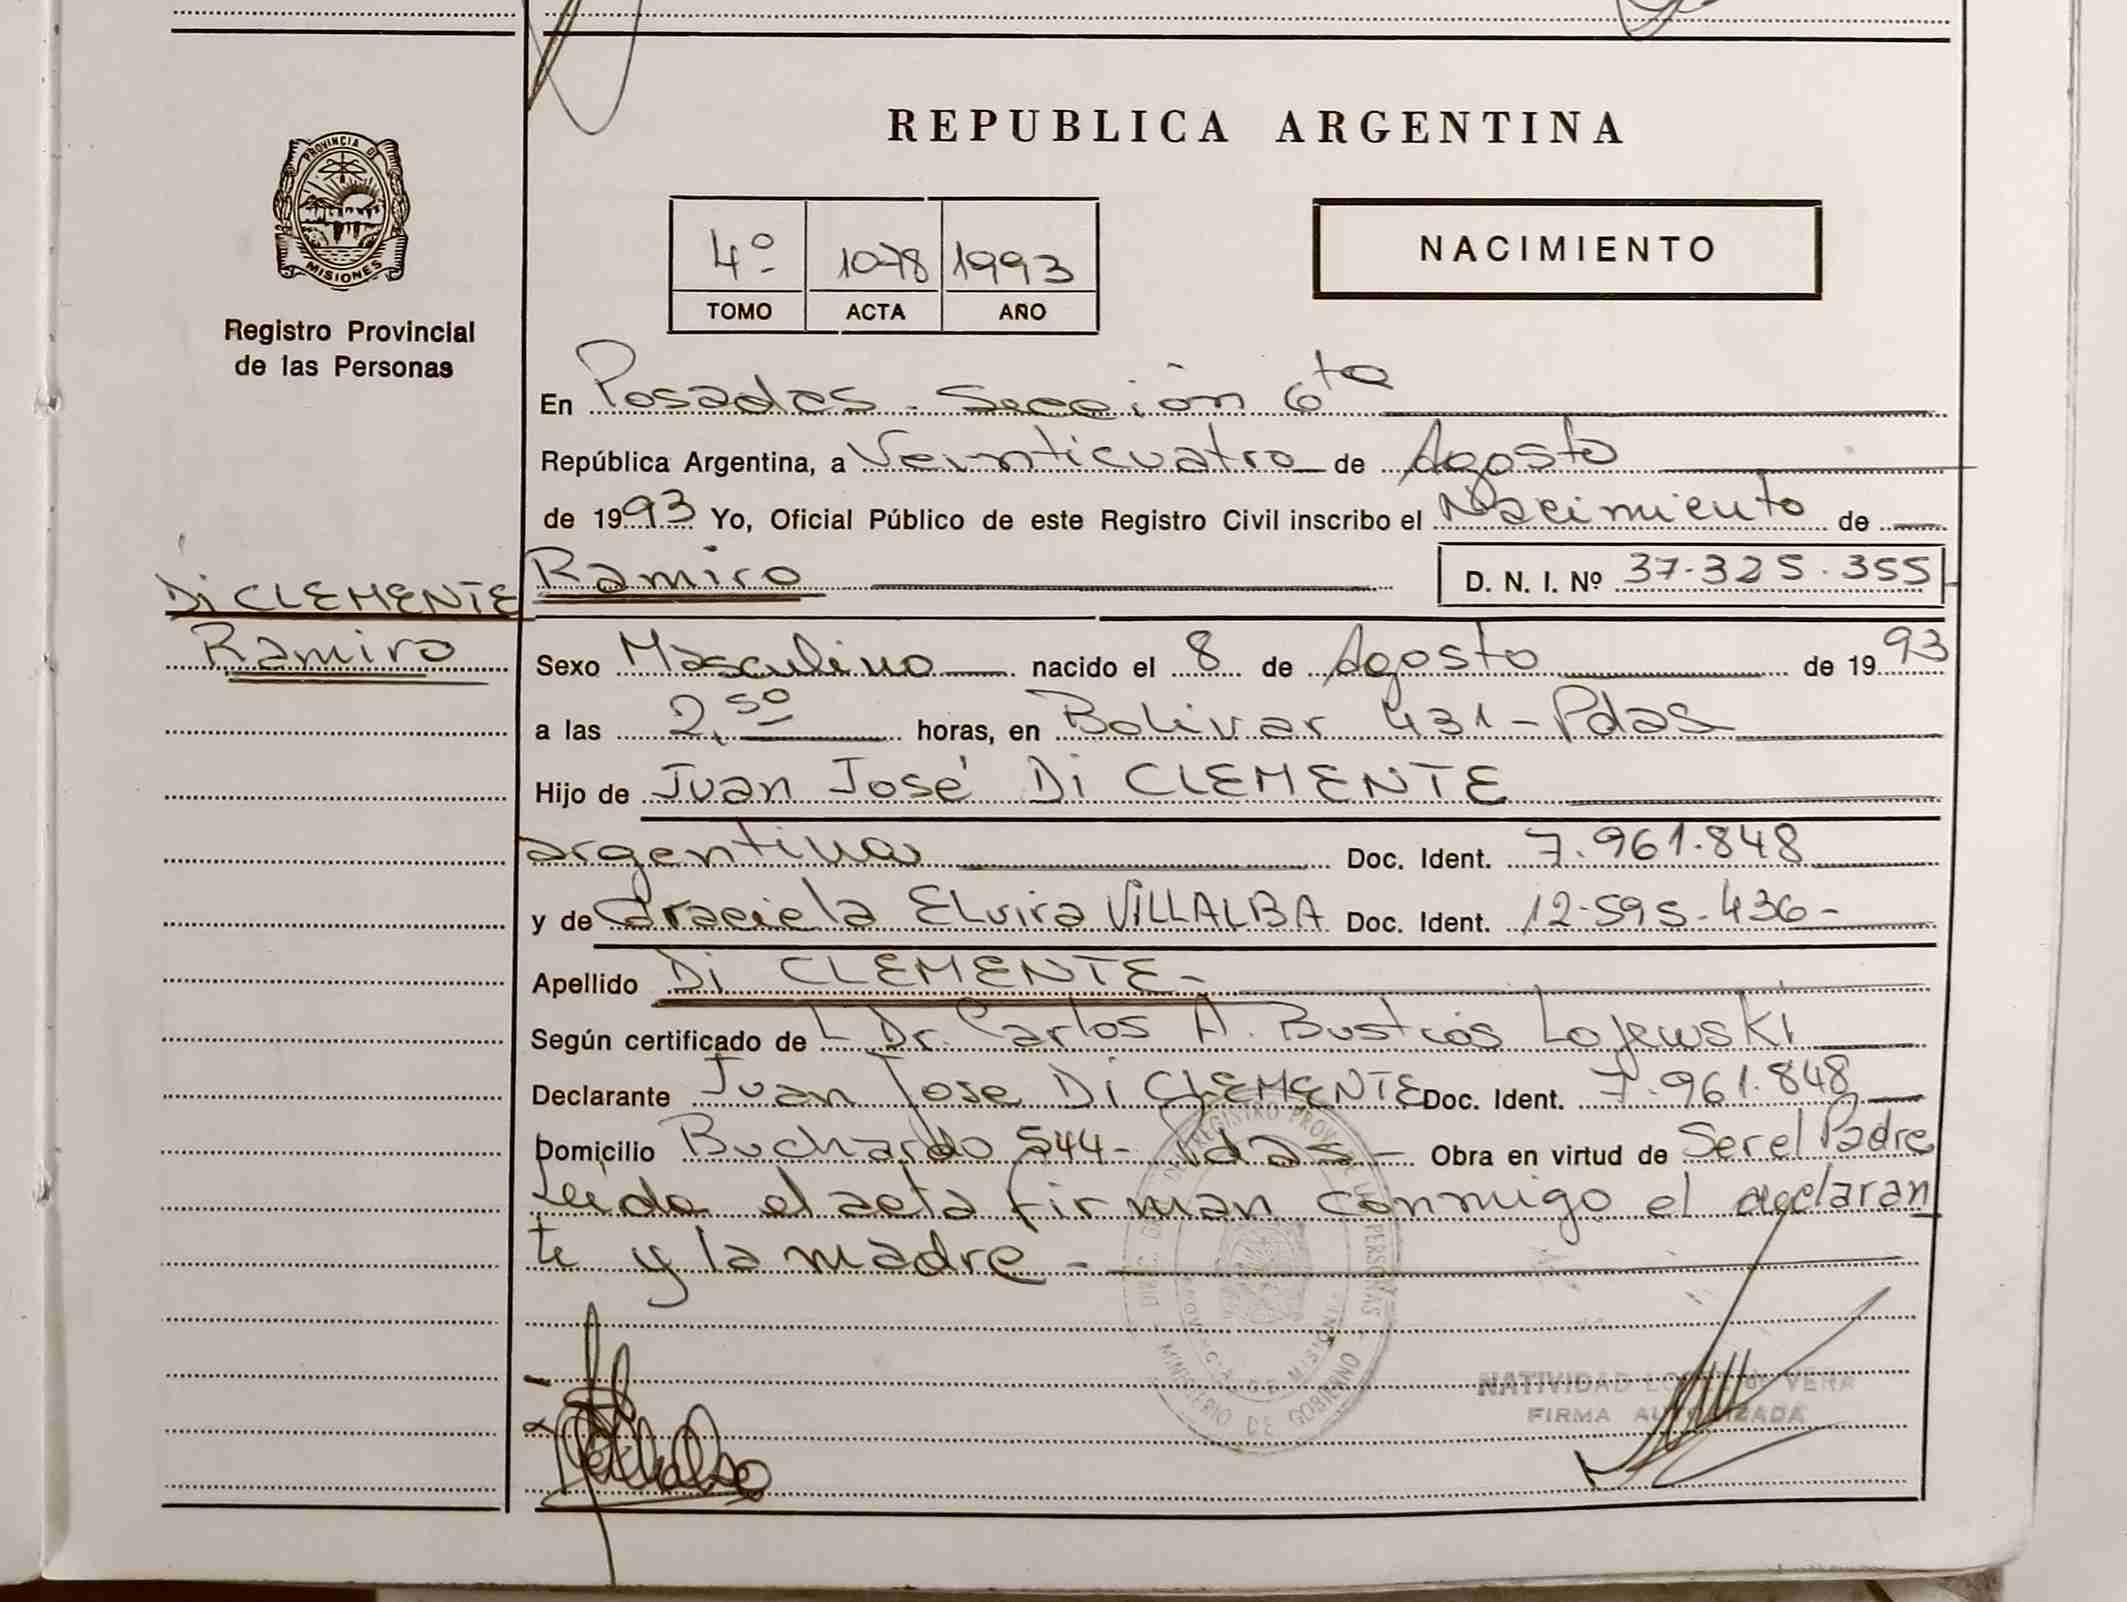 REPUBLICA ARGENTINA
PROVINCIA DE
MISIONES
Registro Provincial
de las Personas
4º 1078 1993
TOMO ACTA AÑO
NACIMIENTO
En Posadas - Sección 6ta
República Argentina, a Veinticuatro de Agosto
de 1993 Yo, Oficial Público de este Registro Civil inscribo el Nacimiento de
Ramiro D. N. I. Nº 37.325.355
Di CLEMENTE
Ramiro
Sexo Masculino nacido el 8 de Agosto de 1993
a las 2,50 horas, en Bolivar 431 - Pdas
Hijo de Juan José Di CLEMENTE
argentina Doc. Ident. 7.961.848
y de Graciela ELvira ViLLALBA Doc. Ident. 12.595.436 -
Apellido Di CLEMENTE -
Según certificado de L Dr. Carlos A. Lojewski
Declarante Juan Jose Di CLEMENTE Doc. Ident. 7.961.848
Domicilio Buchardo 544 - Pdas - Obra en virtud de Ser el Padre
Leída el acta firman conmigo el declaran
te y la madre -
REGISTRO PROV. DE LAS PERSONAS
MINISTERIO DE GOBIERNO
MISIONES
NATIVIDAD VERA
FIRMA AUTORIZADA